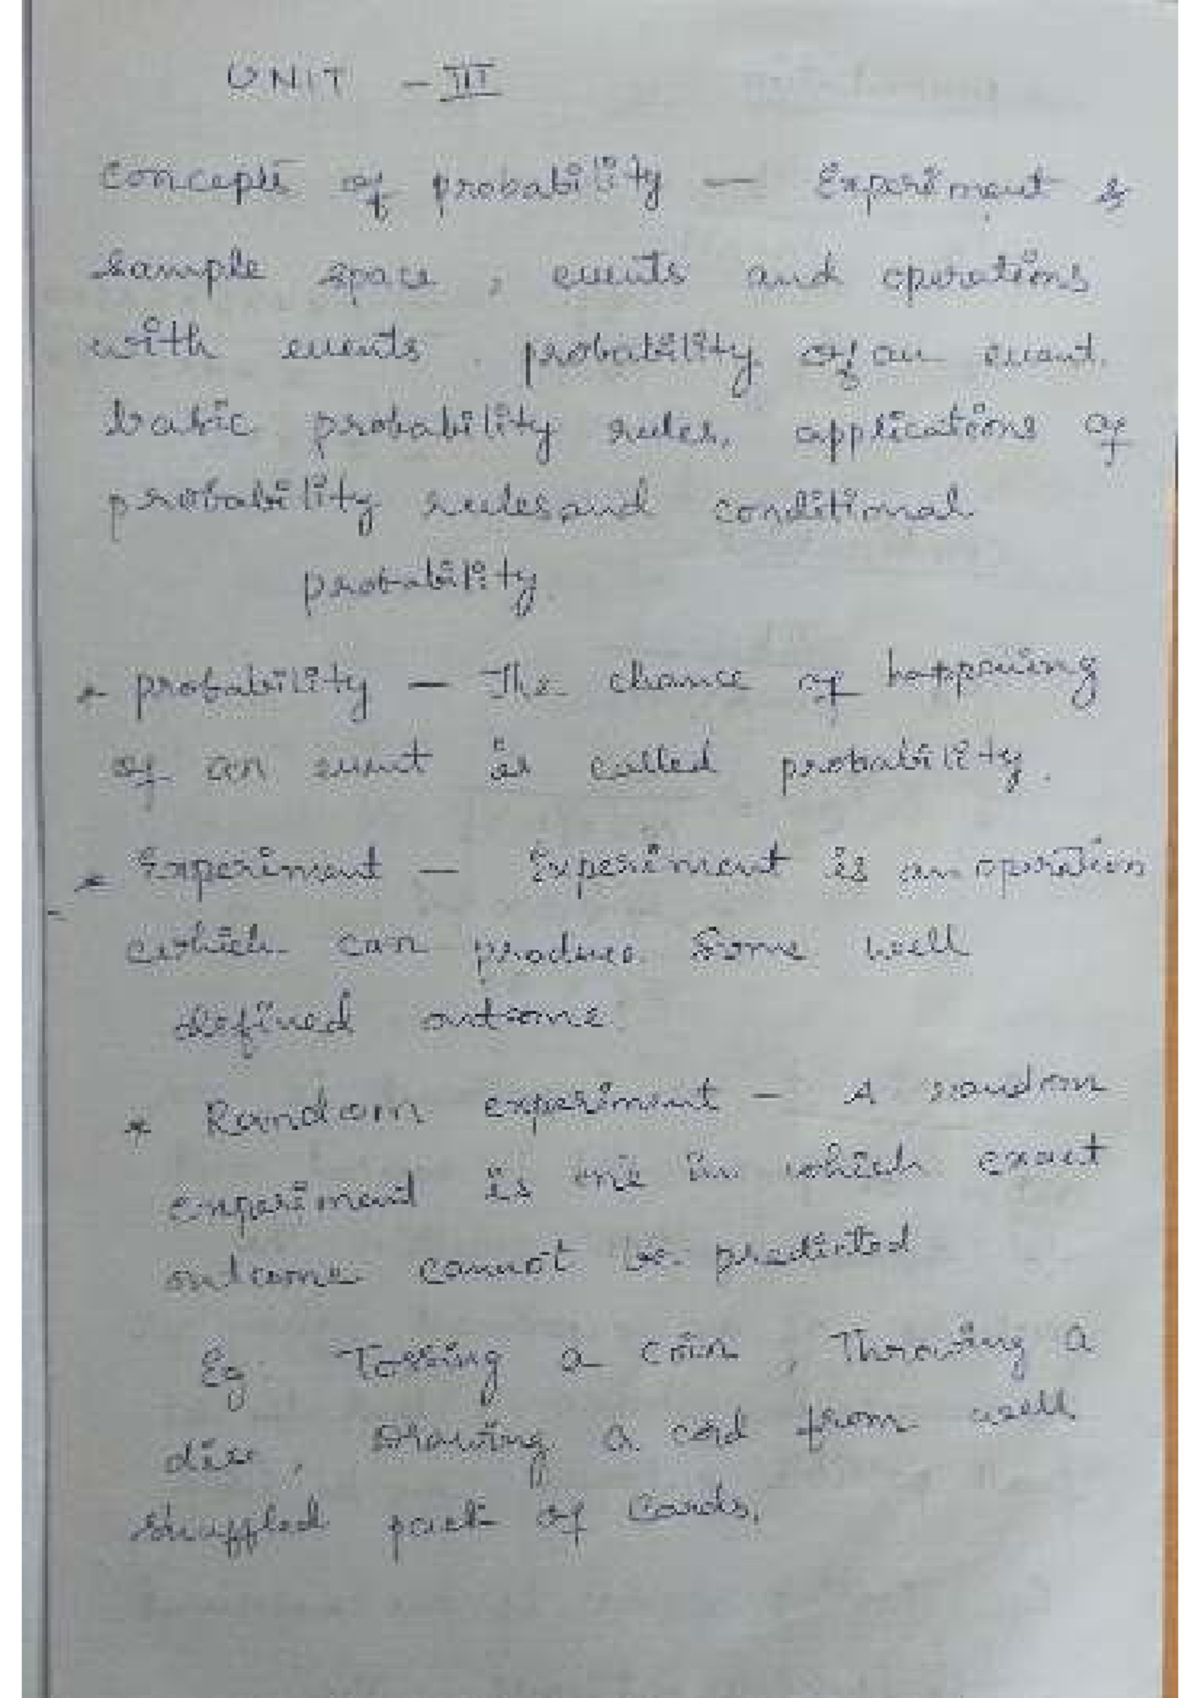 UNIT - III
Concepts of probability - Experiment &
sample space, events and operations
with events. probability of an event.
basic probability rules, applications of
probability rules and conditional
probability.
* probability - The chance of happening
of an event is called probability.
* Experiment - Experiment is an operation
which can produce some well
defined outcome.
* Random experiment - A random
experiment is one in which exact
outcome cannot be predicted
Eg. Tossing a coin, Throwing a
dice, Drawing a card from well
shuffled pack of cards.